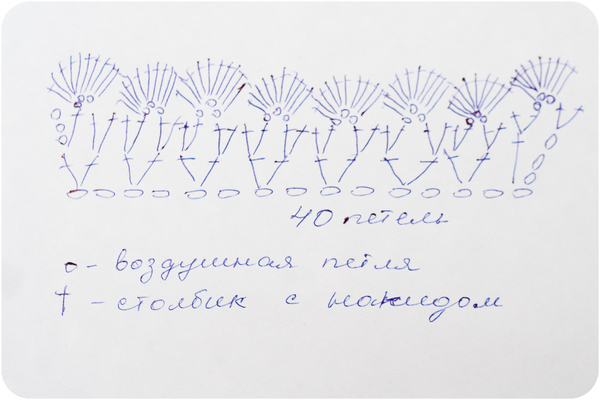 40 петель
o - воздушная петля
† - столбик с накидом